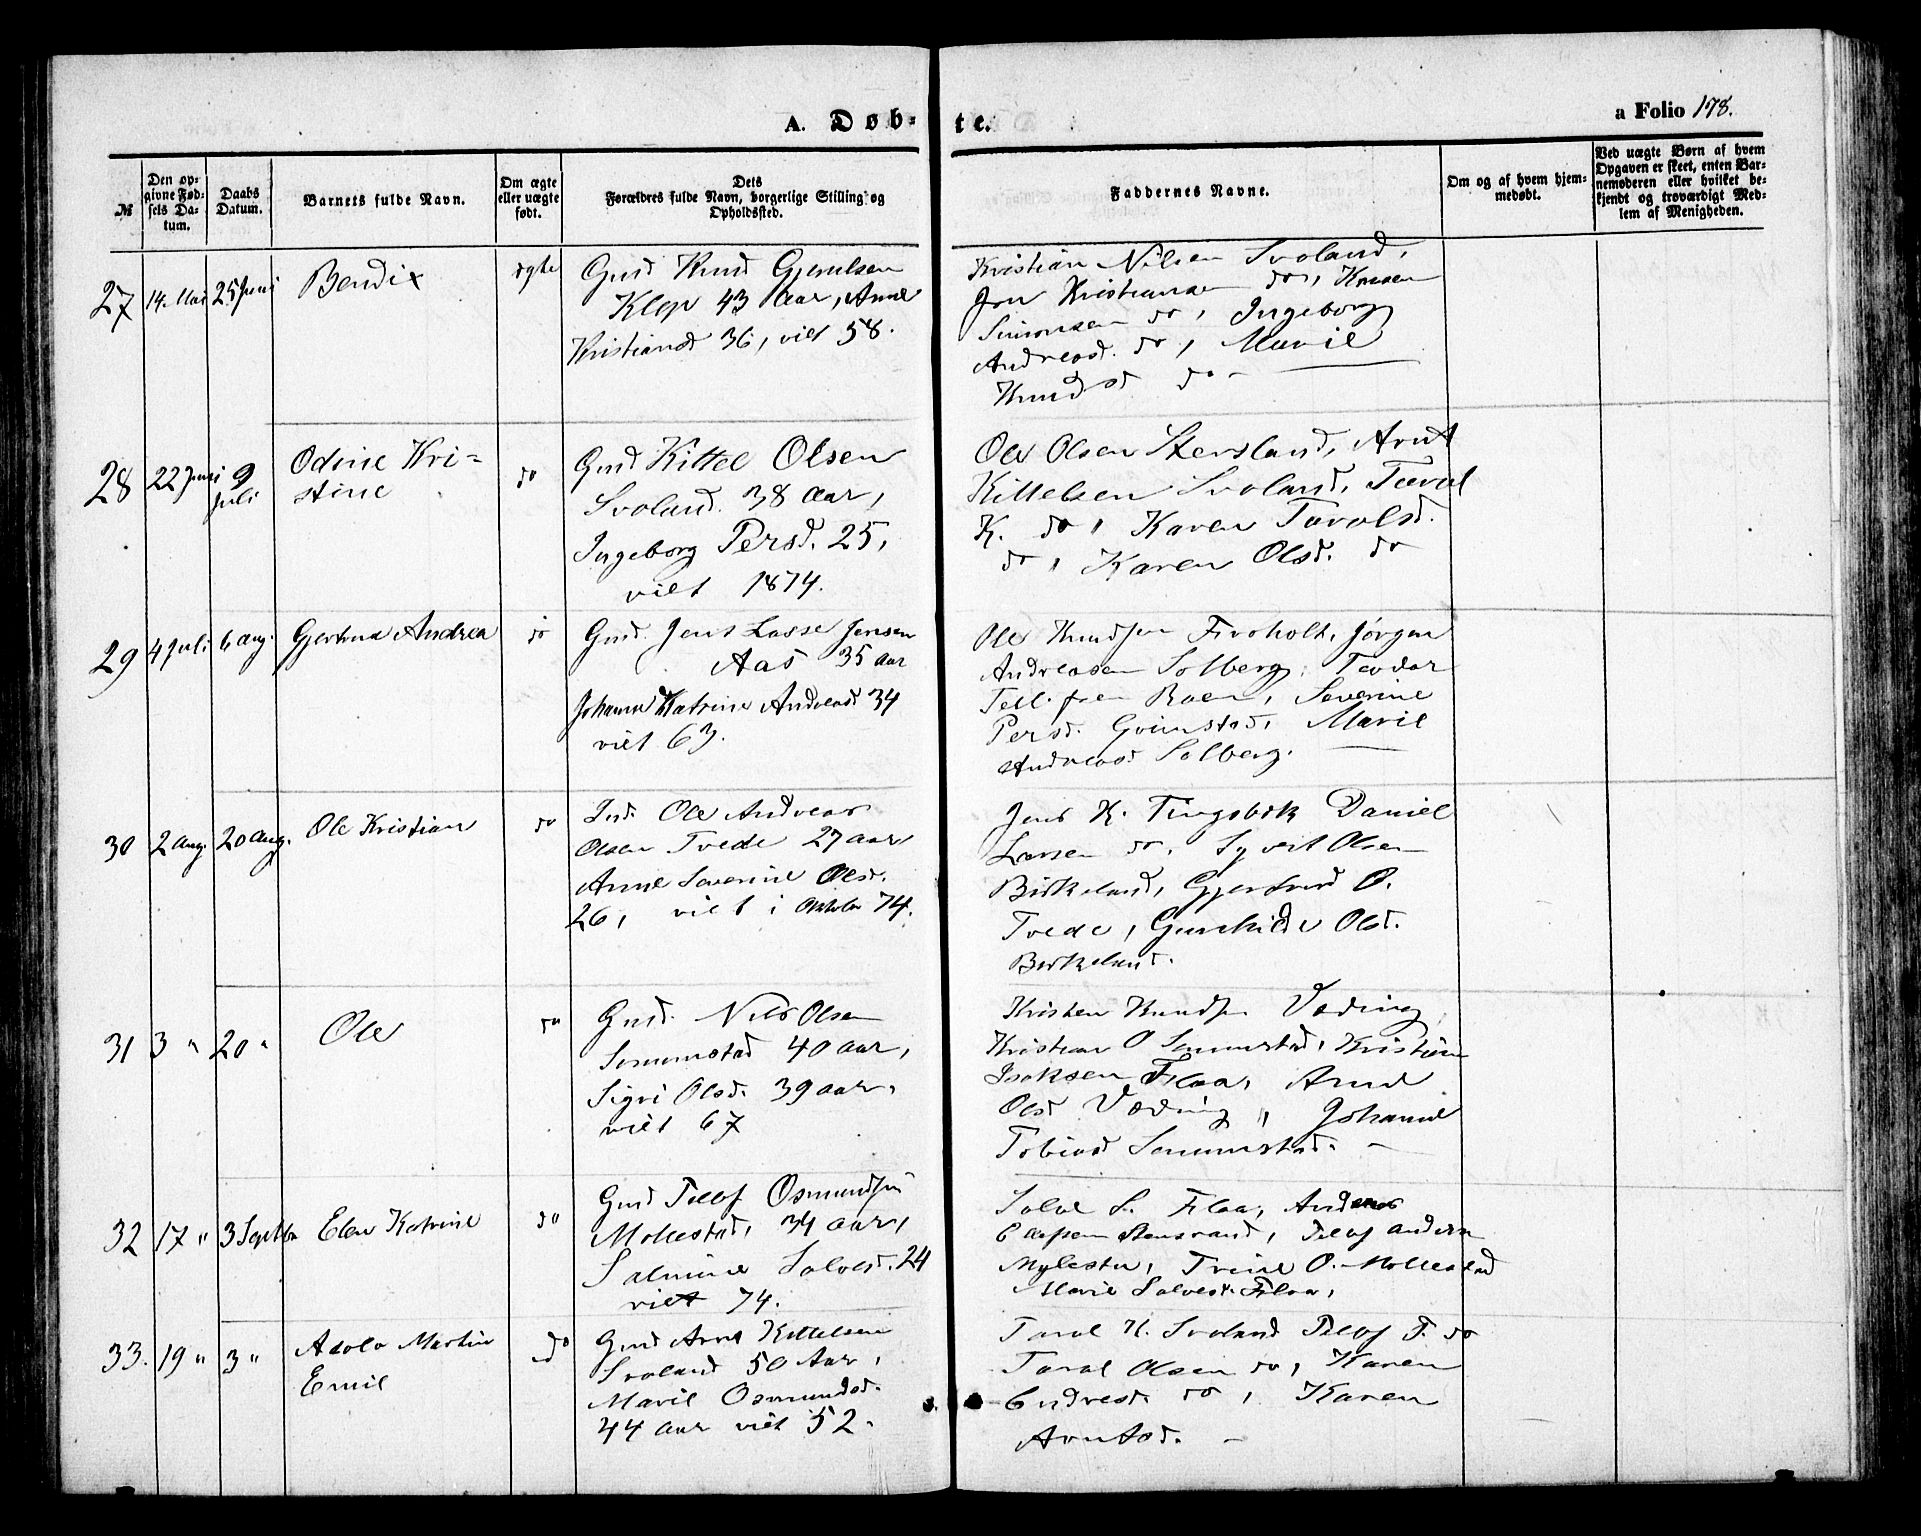 A. Døb-
te.
a Folio 178.
№
Den op-
givne Fød-
sels Da-
tum.
Daabs
Datum.
Barnets fulde Navn.
Om ægte
eller uægte
født.
Dets
Forældres fulde Navn, borgerlige Stilling og
Opholdssted.
Faddernes Navne.
Om og af hvem hjem-
medøbt.
Ved uægte Børn af hvem
Opgaven er skeet, enten Bar-
nemoderen eller hvilket be-
kjendt og troværdigt Med-
lem af Menigheden.
27 14. Mai 25 Juni Bendix ægte
Gmd Knud Gjerulsen
Klep 43 Aar, Anne
Kristiansd 36, viet 58.
Kristian Nilsen Svoland,
Jon Kristiansen do,
Simonsen do, Ingeborg
Andreasd. do, Marie
Knudsd do -
28 22 Juni 9 Juli Odine Kri-
stine do
Gmd Kittel Olsen
Svoland. 38 Aar,
Ingeborg Persd. 25,
viet 1874.
Ole Olsen Stensland, Arnt
Kittelsen Svoland, Taral
K. do, Karen Taralsd.
do, Karen Olsd. do
29 4 Juli 6 aug. Gjertrud Andrea do
Gmd. Jens Lasse Jensen
Aas 35 aar
Johanne Katrine Andreasd 34
viet 63.
Ole Knudsen Froholt, Jørgen
Andreasen Solberg, Teodor
Tellefsen Roen, Severine
Persd. Grimstad, Marie
Andreasd Solberg.
30 2 aug. 20 aug. Ole Kristian do
Ind. Ole Andreas
Olsen Tvede 27 aar
Anne Severine Olsd.
26, viet i Oktober 74.
Jens K. Tingsbøk Daniel
Larsen do, Syvert Olsen
Birkeland, Gjertrud O.
Tvede, Gunhilde Olsd.
Birkeland.
31 3 " 20 " Ole do
Gmd. Nils Olsen
Sommstad 40 aar,
Sigri Olsd. 39 aar,
viet 67
Kristen Knudsen Væding,
Kristian O Sommstad, Kristian
Isaksen Flaa, Anne
Olsd Væding, Johanne
Tobiasd Sommstad. -
32 17 " 3 Septbr Elen Katrine do
Gmd Tellef Osmundsen
Mollestad, 34 aar,
Salmine Salvesd. 24
viet 74.
Salve S. Flaa, Andreas
Stensrand, Tellef Andersen
Trine O. Mollestad
Marie Salvesd. Flaa,
33. 19 " 3 " Adolv Martin
Emil do
Gmd Arnt Kittelsen
Svoland 50 Aar,
Marie Osmundsd.
44 aar viet 52.
Taral K. Svoland Tellef T. do
Taral Olsen do, Karen
Endresd. do, Karen
Arntsd. -